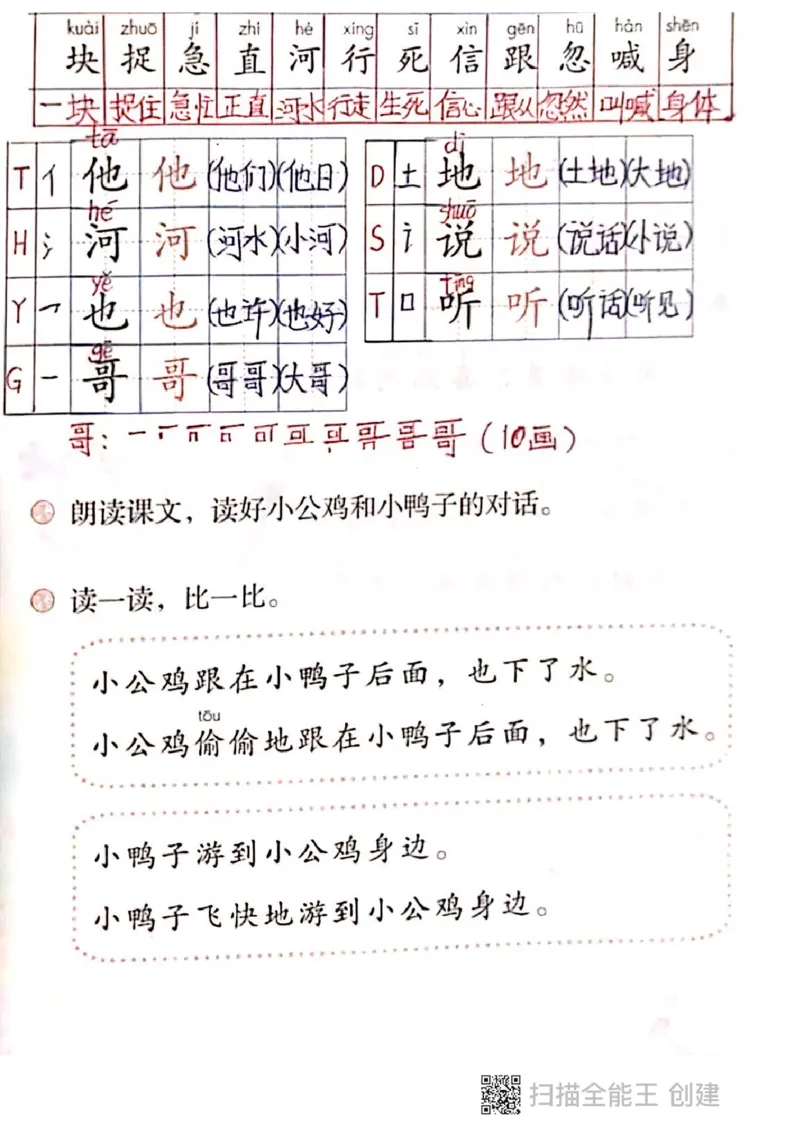 kuài zhuō jí zhí hé xíng sǐ xìn gēn hū hǎn shēn
块 捉 急 直 河 行 死 信 跟 忽 喊 身
一块 捉住 急忙 正直 河水 行走 生死 信心 跟从 忽然 叫喊 身体
tā dì
T 亻 他 他 (他们)(他日) D 土 地 地 (土地)(大地)
hé shuō
H 氵 河 河 (河水)(小河) S 讠 说 说 (说话)(小说)
yě tīng
Y 乛 也 也 (也许)(也好) T 口 听 听 (听话)(听见)
gē
G 一 哥 哥 (哥哥)(大哥)
哥: (10画)
朗读课文，读好小公鸡和小鸭子的对话。
读一读，比一比。
小公鸡跟在小鸭子后面，也下了水。
tōu
小公鸡偷偷地跟在小鸭子后面，也下了水。
小鸭子游到小公鸡身边。
小鸭子飞快地游到小公鸡身边。
扫描全能王 创建